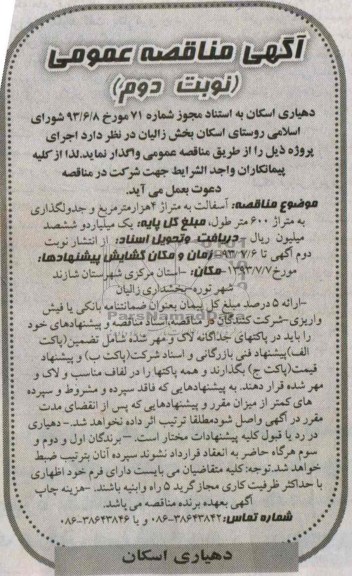 آگهی مناقصه عمومی
(نوبت دوم)
دهیاری اسکان به استناد مجوز شماره ۷۱ مورخ ۹۳/۶/۸ شورای
اسلامی روستای اسکان بخش زالیان در نظر دارد اجرای
پروژه ذیل را از طریق مناقصه عمومی واگذار نماید.لذا از کلیه
پیمانکاران واجد الشرایط جهت شرکت در مناقصه
دعوت بعمل می آید.
موضوع مناقصه: آسفالت به متراژ ۴هزارمترمربع و جدولگذاری
به متراژ ۶۰۰ متر طول، مبلغ کل پایه: یک میلیاردو ششصد
میلیون ریال - دریافت وتحویل اسناد: از انتشار نوبت
دوم آگهی تا ۹۳/۰۷/۶- زمان و مکان گشایش پیشنهادها:
مورخ۱۳۹۳/۷/۷-مکان: -استان مرکزی شهرستان شازند
شهر توره-بخشداری زالیان
-ارائه ۵ درصد مبلغ کل پیمان بعنوان ضمانتنامه بانکی یا فیش
واریزی-شرکت کنندگان در مناقصه،اسناد مناقصه و پیشنهادهای خود
را باید در پاکتهای جداگانه لاک و مهر شده شامل تضمین(پاکت
الف)پیشنهاد فنی بازرگانی و اسناد شرکت(پاکت ب) و پیشنهاد
قیمت(پاکت ج) بگذارند و همه پاکتها را در لفاف مناسب و لاک و
مهر شده قرار دهند. به پیشنهادهایی که فاقد سپرده و مشروط و سپرده
های کمتر از میزان مقرر و پیشنهادهایی که پس از انقضای مدت
مقرر در آگهی واصل شودمطلقا ترتیب اثر داده نخواهد شد.- دهیاری
در رد یا قبول کلیه پیشنهادات مختار است. -برندگان اول و دوم و
سوم هرگاه حاضر به انعقاد قرارداد نشوند سپرده آنان بترتیب ضبط
خواهد شد.توجه: کلیه متقاضیان می بایست دارای فرم خود اظهاری
با حداکثر ظرفیت کاری مجاز گرید ۵ راه وابنیه باشند. -هزینه چاپ
آگهی بعهده برنده مناقصه می باشد.
شماره تماس: ۳۸۶۴۳۸۴۲-۰۸۶ و یا ۳۸۶۴۳۸۴۶-۰۸۶
دهیاری اسکان